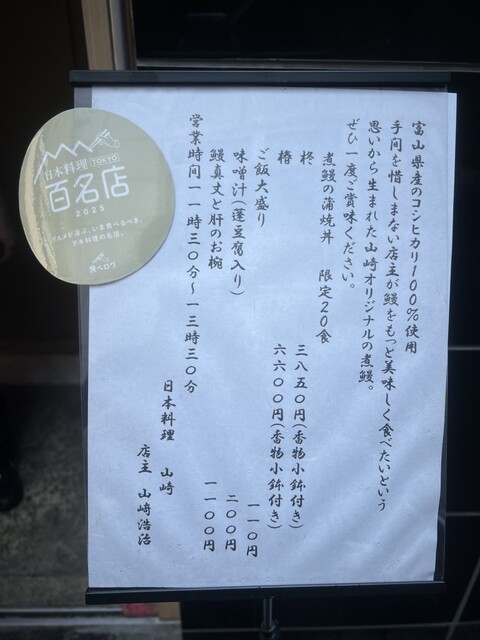 富山県産のコシヒカリ100%使用
手間を惜しまない店主が鰻をもっと美味しく食べたいという
思いから生まれた山﨑オリジナルの煮鰻。
ぜひ一度ご賞味ください。
煮鰻の蒲焼丼 限定20食
柊 三八五〇円(香物小鉢付き)
椿 六六〇〇円(香物小鉢付き)
ご飯大盛り 一一〇円
味噌汁(蓬豆腐入り) 二〇〇円
鰻真丈と肝のお椀 一一〇〇円
営業時間一一時三〇分~一三時三〇分
日本料理 山﨑
店主 山﨑浩治
日本料理 TOKYO
百名店
2025
グルメが選ぶ、いま食べるべき、
日本料理の名店。
食べログ